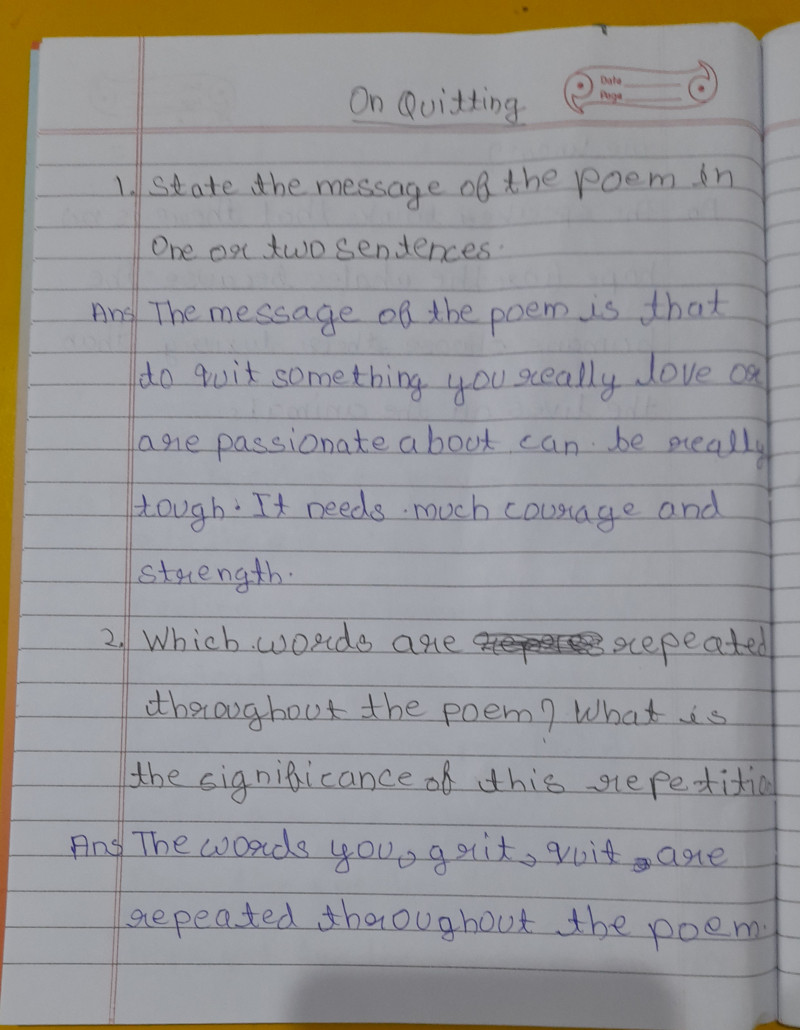 On Quitting
Date
Page
1. State the message of the poem in
One or two sentences.
Ans The message of the poem is that
to quit something you really love or
are passionate about can be really
tough. It needs much courage and
strength.
2. Which words are repeated
throughout the poem? What is
the significance of this repetitio
Ans The words you, grit, quit, are
repeated throughout the poem.